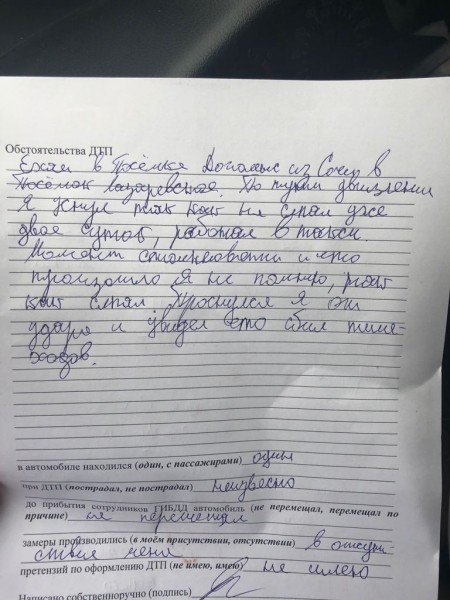 Обстоятельства ДТП
Ехал в Посёлке Дагомыс из Сочи в
Посёлок лазаревское. По пути движения
Я Уснул так как не спал уже
двое суток, работал в такси.
Момент столкновения и что
произошло Я не помню, так
как спал Проснулся Я от
удара и увидел что сбил пише-
ходов.
в автомобиле находился (один, с пассажирами) один
при ДТП (пострадал, не пострадал) неизвесно
до прибытия сотрудников ГИБДД автомобиль (не перемещал, перемещал по
причине) не перемещал
замеры производились (в моём присутствии, отсутствии) в отсут-
ствие меня
претензий по оформлению ДТП (не имею, имею) не имею
Написано собственноручно (подпись)